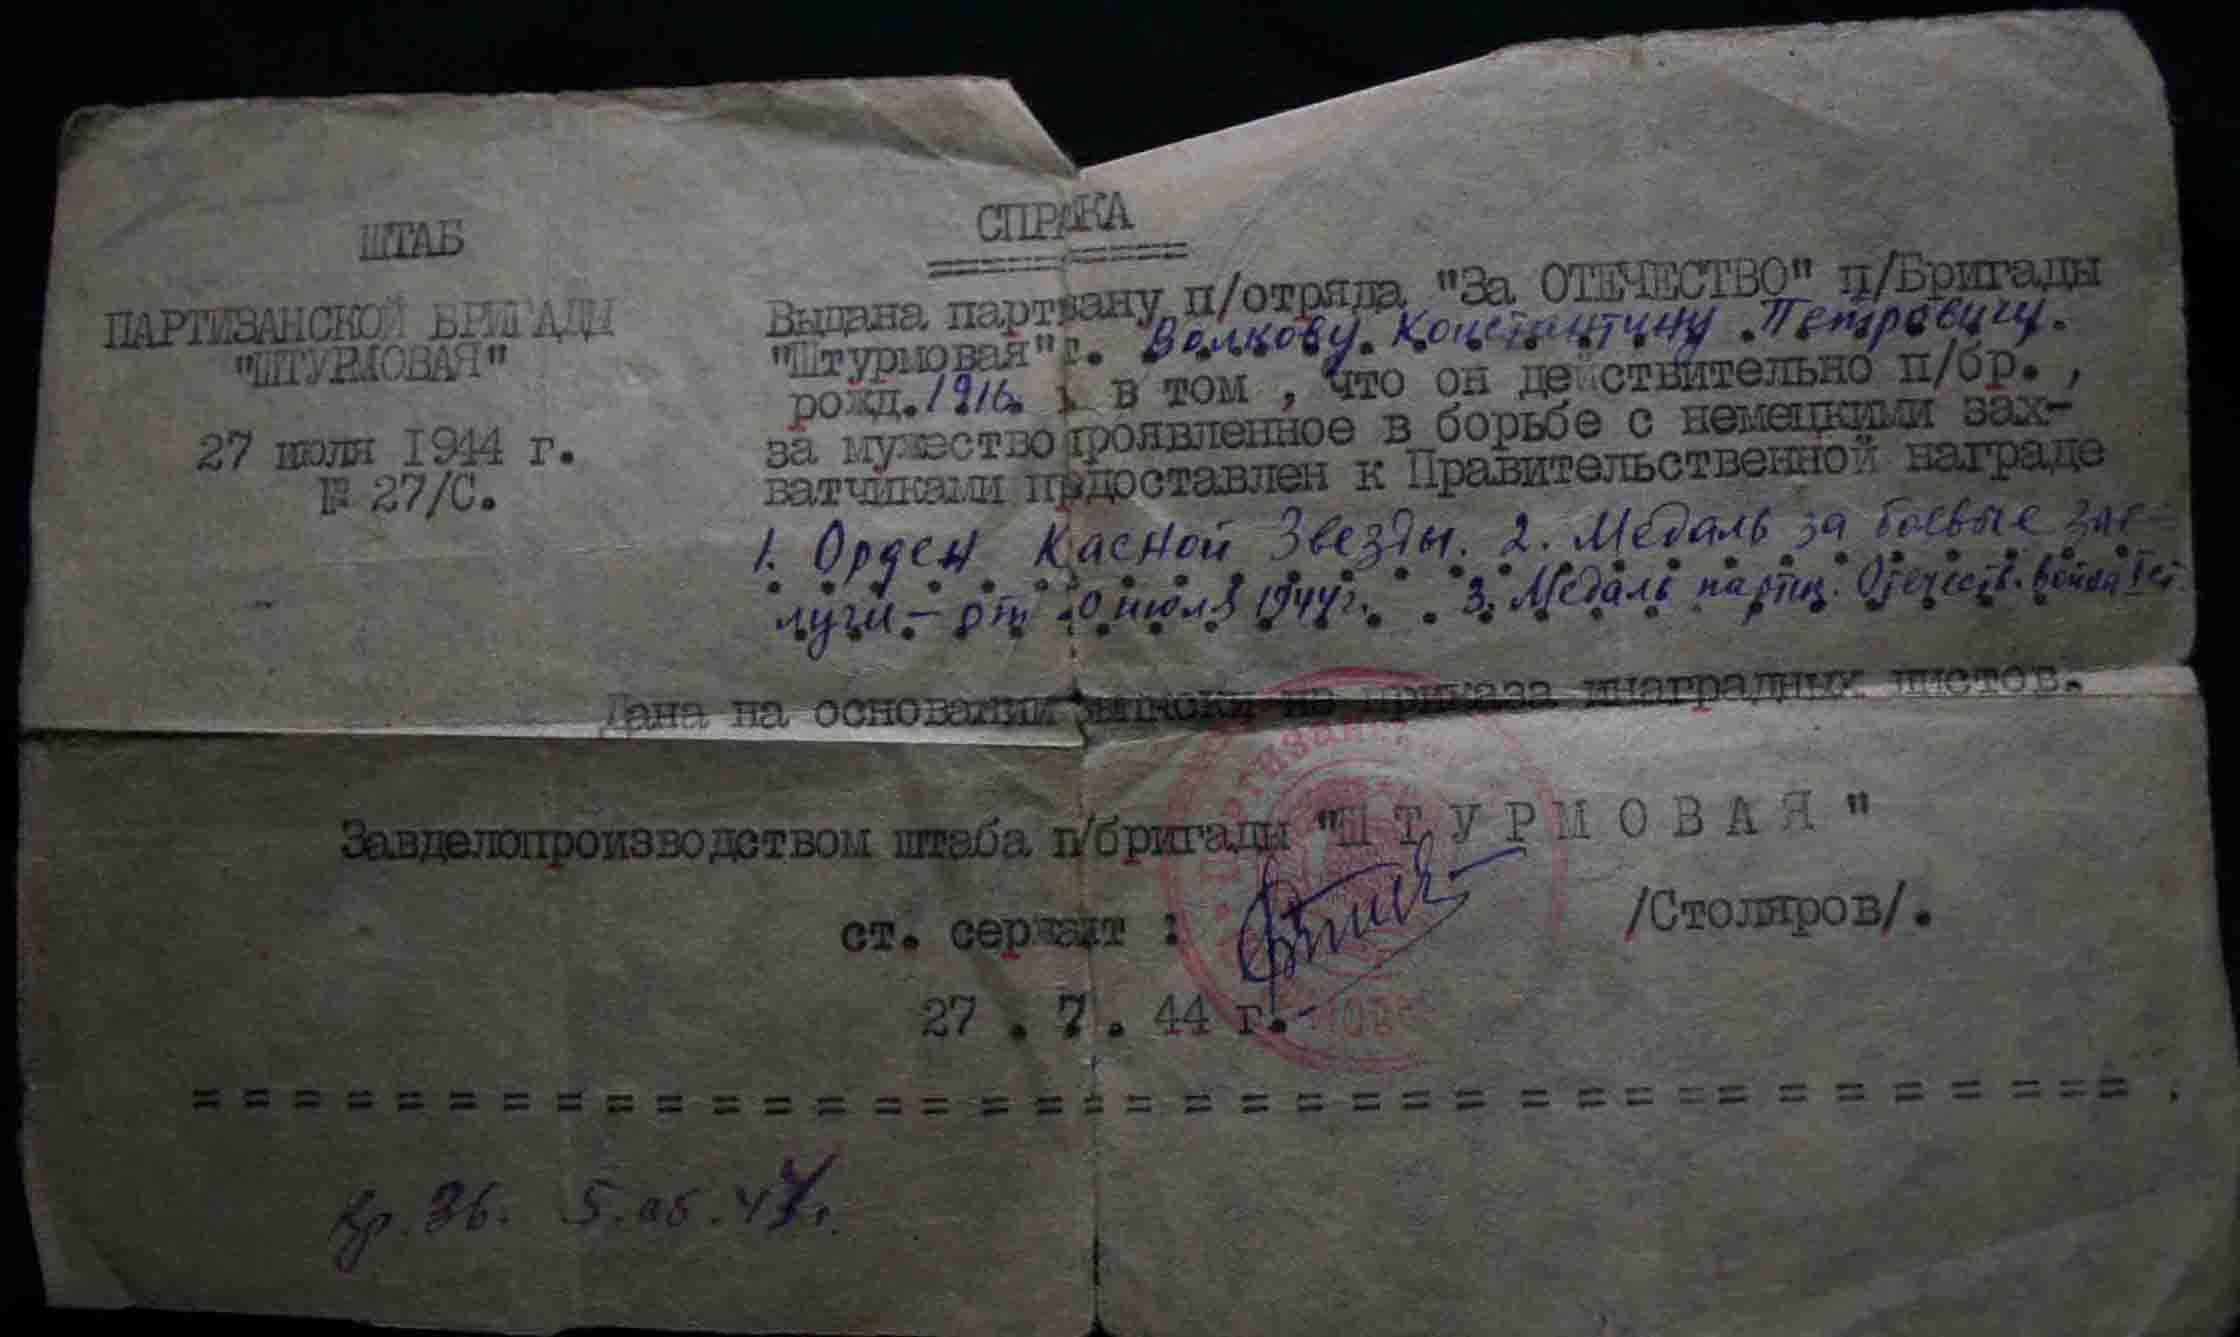 СПРАКА
ШТАБ
ПАРТИЗАНСКОЙ БРИГАДЫ
"ШТУРМОВАЯ"
27 июля 1944 г.
№ 27/С.
Выдана партизану п/отряда "За ОТЕЧЕСТВО" п/Бригады
"Штурмовая" г. Волкову Константину Петровичу.
рожд. 1916 в том , что он действительно п/бр. ,
за мужество проявленное в борьбе с немецкими зах-
ватчиками предоставлен к Правительственной награде
1. Орден Касной Звезды. 2. Медаль за боевые зас-
луги - от июля 1944г. 3. Медаль партиз. Отечеств. войны I ст.
Дана на основании выписки из приказа инаградных листов.
Завделопроизводством штаба п/бригады "ШТУРМОВАЯ"
ст. сержант : /Столяров/.
27 . 7 . 44 г.-
Партизанская
5. 44г.